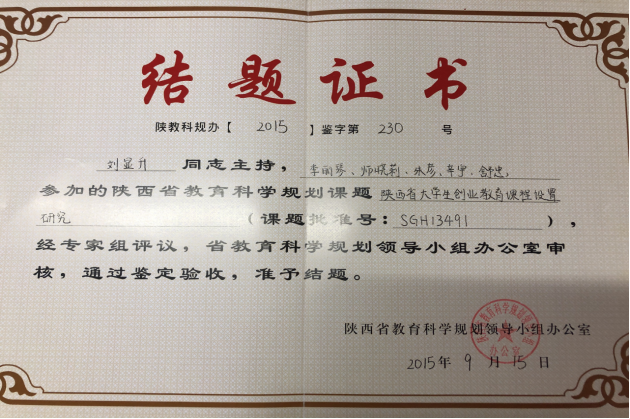 结题证书
陕教科规办【 2015 】鉴字第 230 号
刘显升 同志主持，李丽琴、师晓莉、朱彦、辛宇、舒忠，
参加的陕西省教育科学规划课题 陕西省大学生创业教育课程设置
研究（课题批准号：SGH13491），
经专家组评议，省教育科学规划领导小组办公室审
核，通过鉴定验收，准予结题。
陕西省教育科学规划领导小组办公室
2015年 9 月 15 日